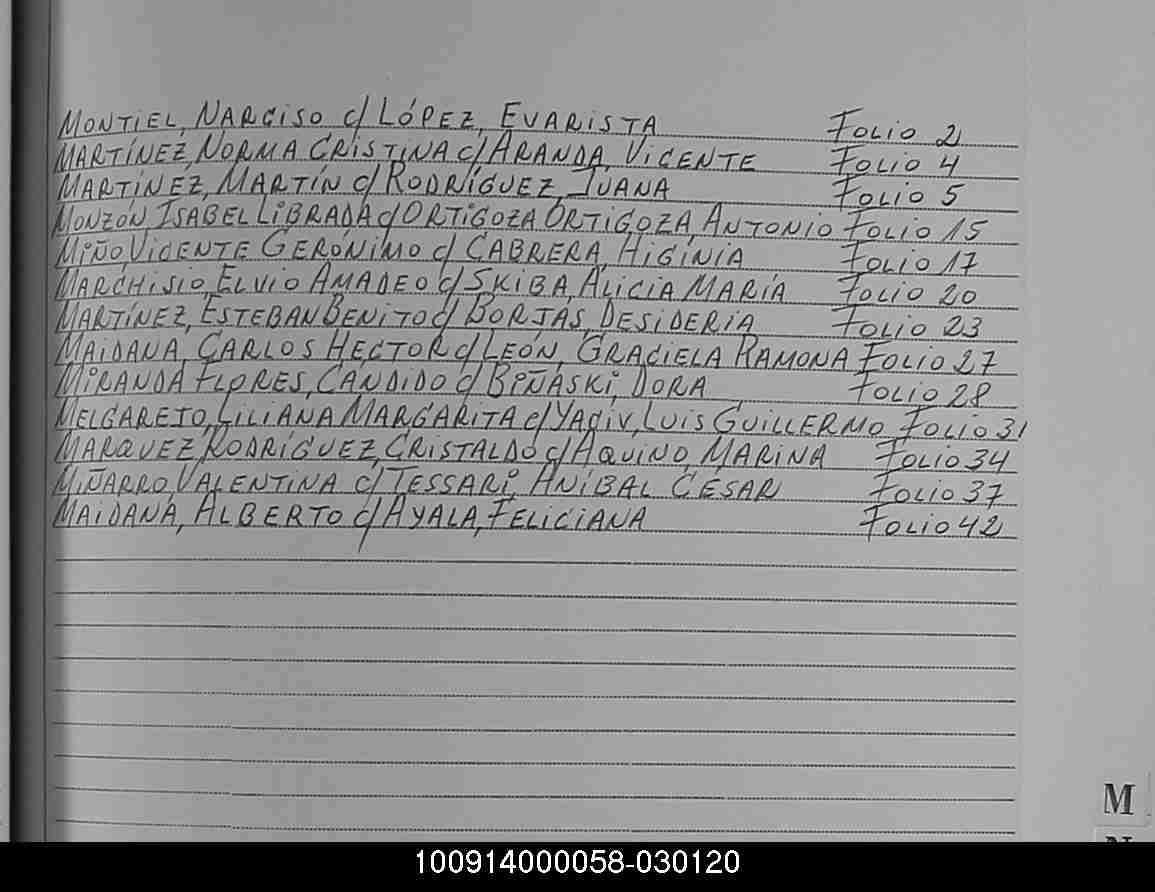 MONTIEL, NARCISO c/ LÓPEZ, EVARISTA Folio 2
MARTÍNEZ, NORMA CRISTINA c/ ARANDA, VICENTE Folio 4
MARTÍNEZ, MARTÍN c/ RODRÍGUEZ, JUANA Folio 5
MONZÓN ISABEL LIBRADA c/ ORTIGOZA ORTIGOZA, ANTONIO Folio 15
MIÑO VICENTE GERÓNIMO c/ CABRERA, HIGINIA Folio 17
MARCHISIO, ELVIO AMADEO c/ SKIBA, ALICIA MARÍA Folio 20
MARTÍNEZ, ESTEBAN BENITO c/ BORJAS, DESIDERIA Folio 23
MAIDANA, CARLOS HECTOR c/ LEÓN, GRACIELA RAMONA Folio 27
MIRANDA FLORES, CANDIDO c/ BIÑASKI, DORA Folio 28
MELGAREJO, LILIANA MARGARITA c/ YAGIV, LUIS GUILLERMO Folio 31
MARQUEZ RODRÍGUEZ, CRISTALDO c/ AQUINO, MARINA Folio 34
MIÑARRO, VALENTINA c/ TESSARI, ANÍBAL CÉSAR Folio 37
MAIDANA, ALBERTO c/ AYALA, FELICIANA Folio 42
M
100914000058-030120